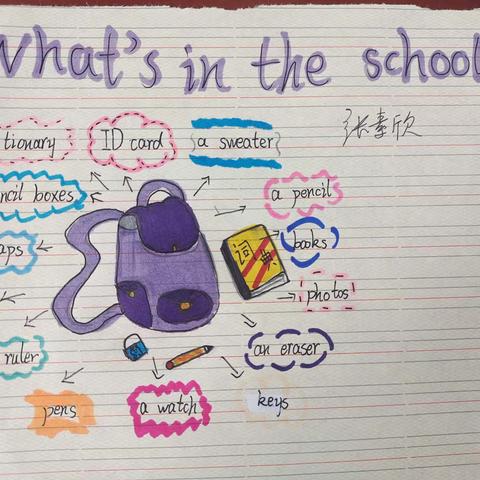 What's in the school
张熹欣
tionary
ID card
a sweater
ncil boxes
a pencil
books
aps
词典
photos
ruler
an eraser
pens
a watch
keys